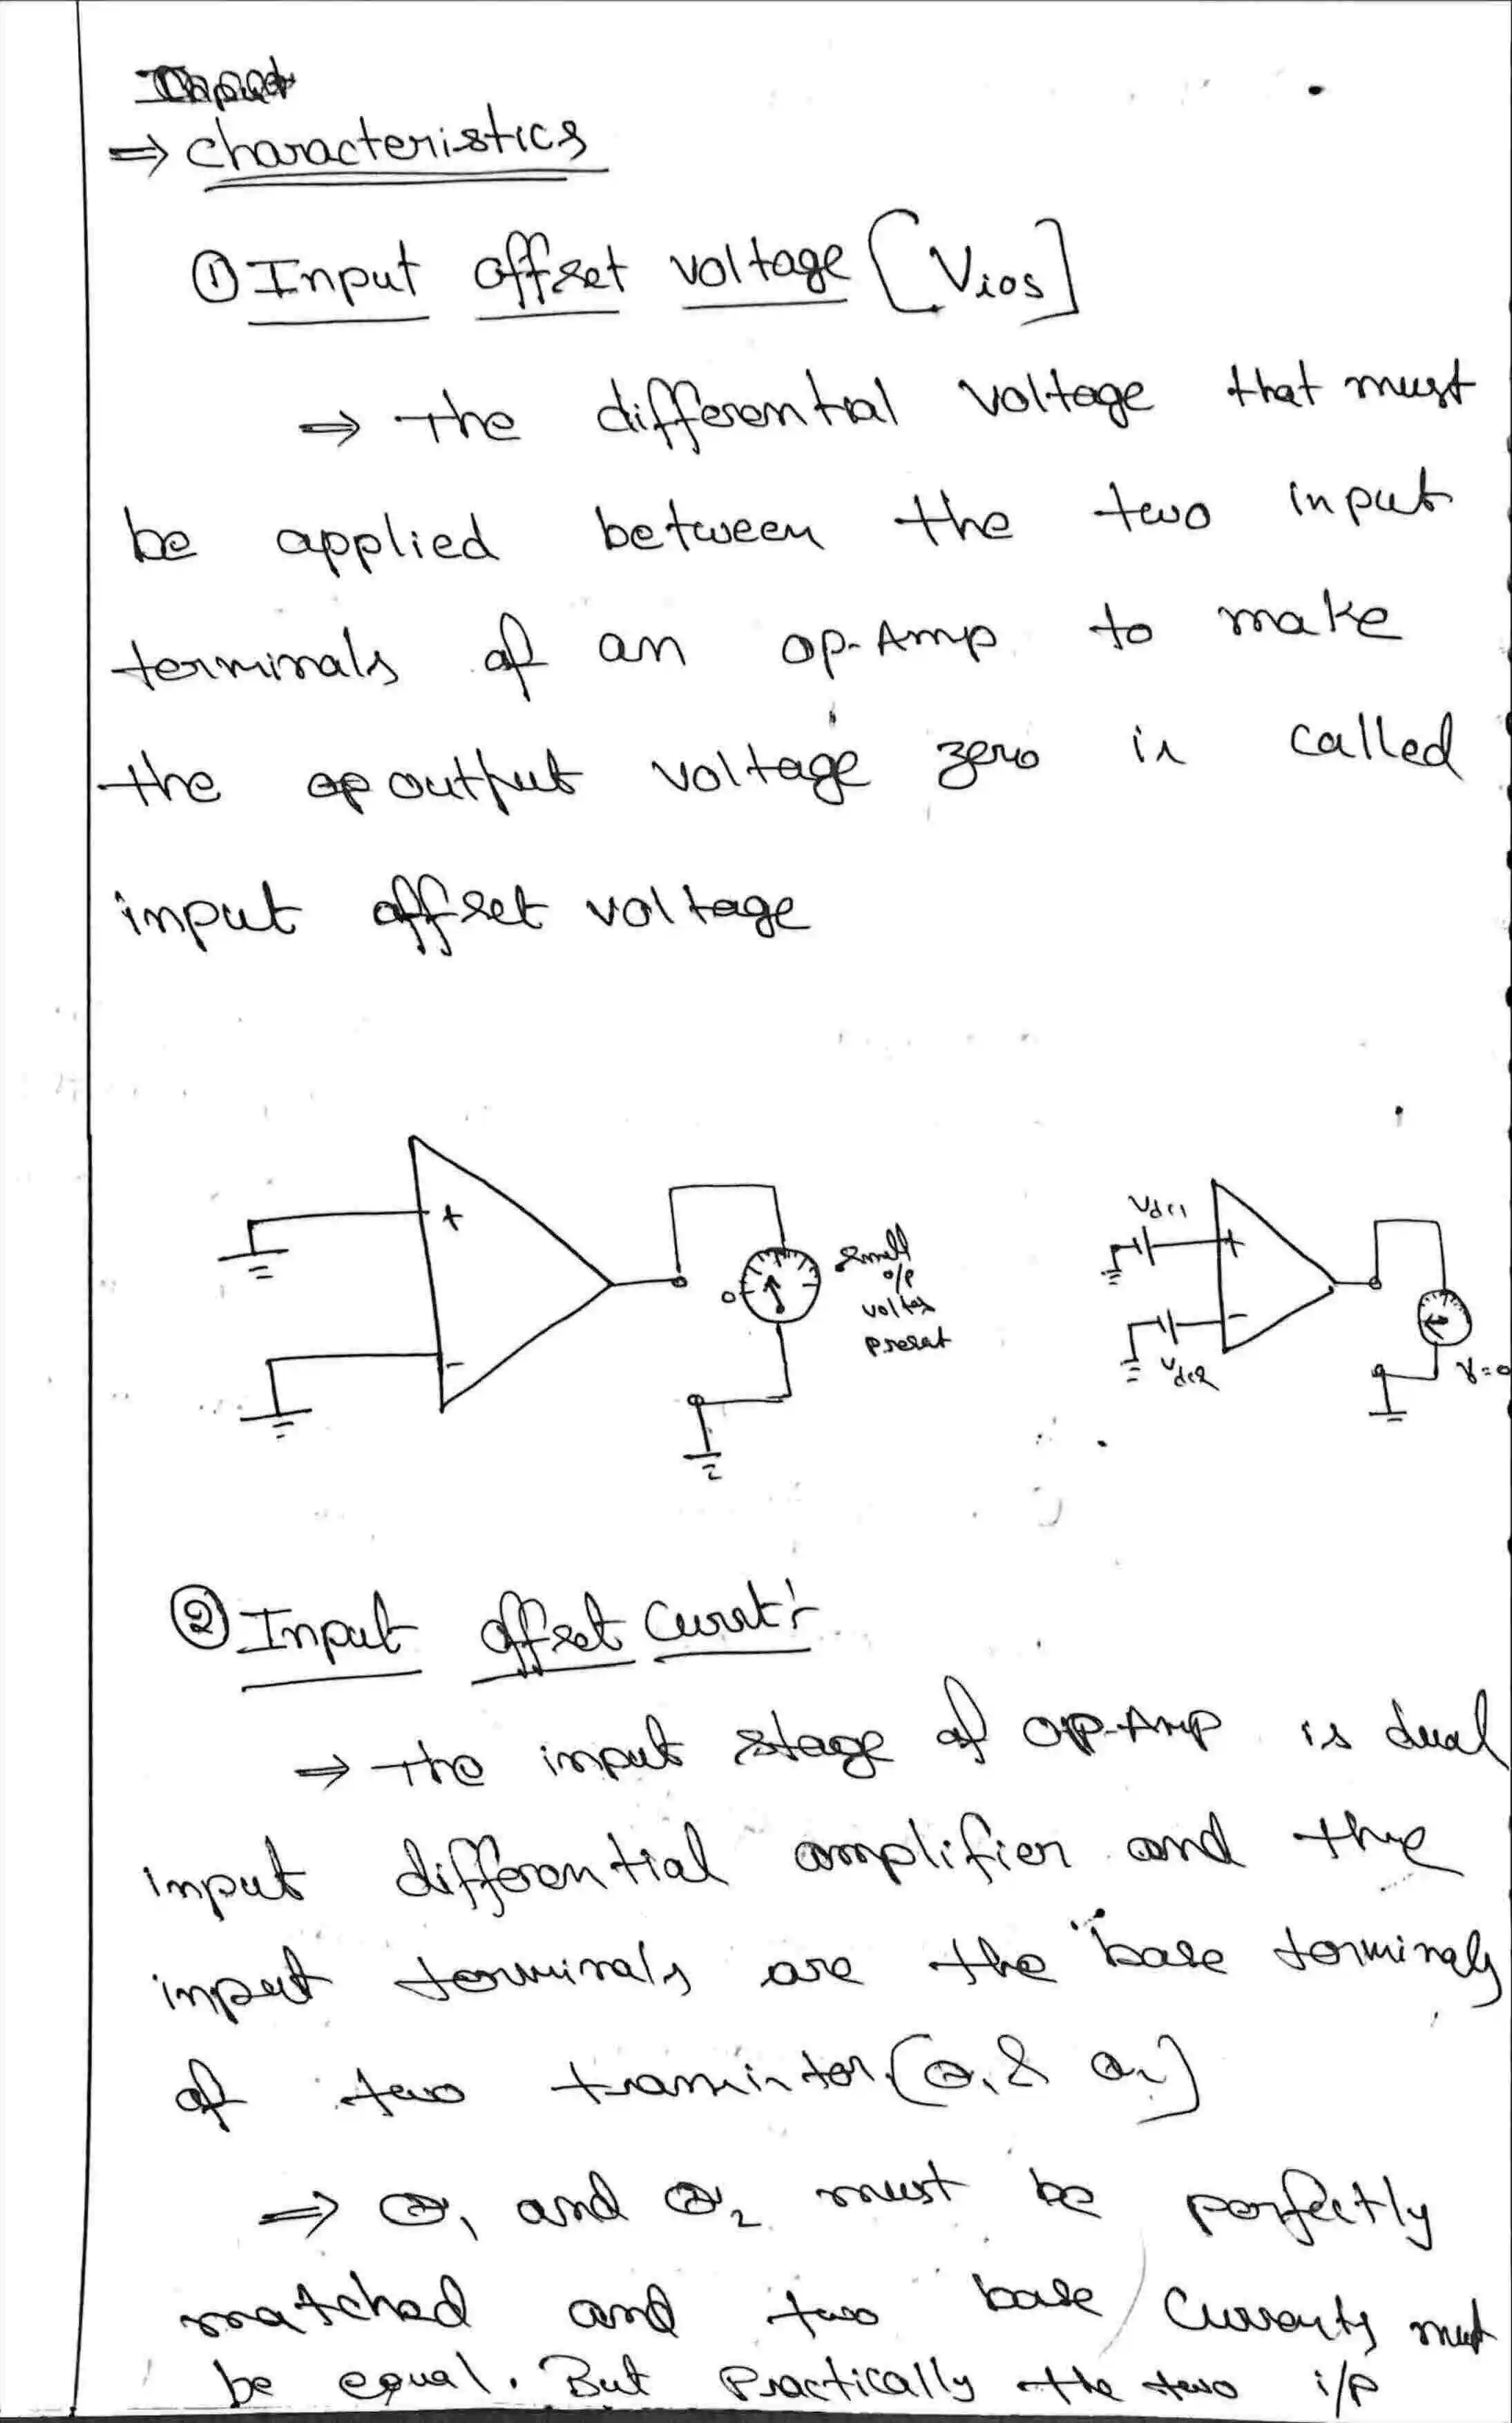 Input
⇒ characteristics
① Input offset voltage [Vios]
⇒ the differential voltage that must
be applied between the two input
terminals of an op-Amp to make
the op output voltage zero is called
input offset voltage
+
-
0
small
o/p
voltag
presat
Vdc1
+
-
Vdc2
V=0
② Input offset Currt:-
⇒ the input stage of op-Amp is dual
input differential amplifier and the
input terminals are the base terminals
of two transistor (Q1 & Q2)
⇒ Q1 and Q2 must be perfectly
matched and two base currents must
be equal. But Practically the two i/p